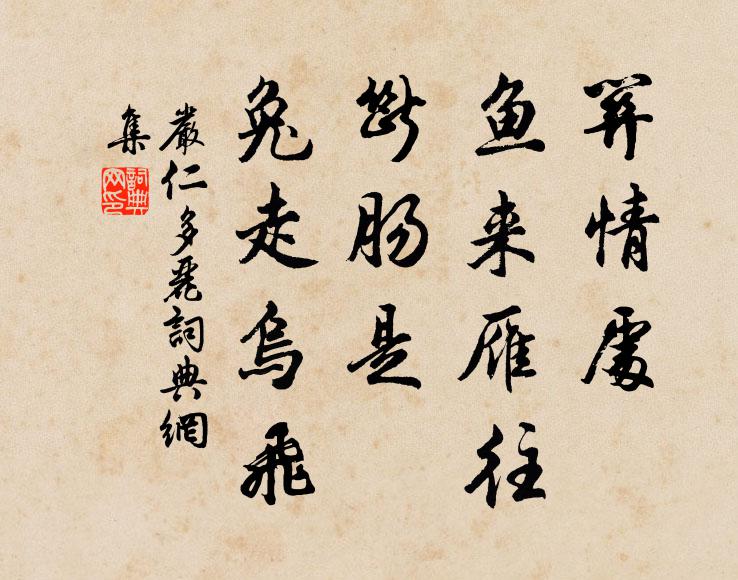 關情處
鱼来雁往
斷肠是
兔走烏飛
嚴仁多麗詞典網
集
詞典
网印